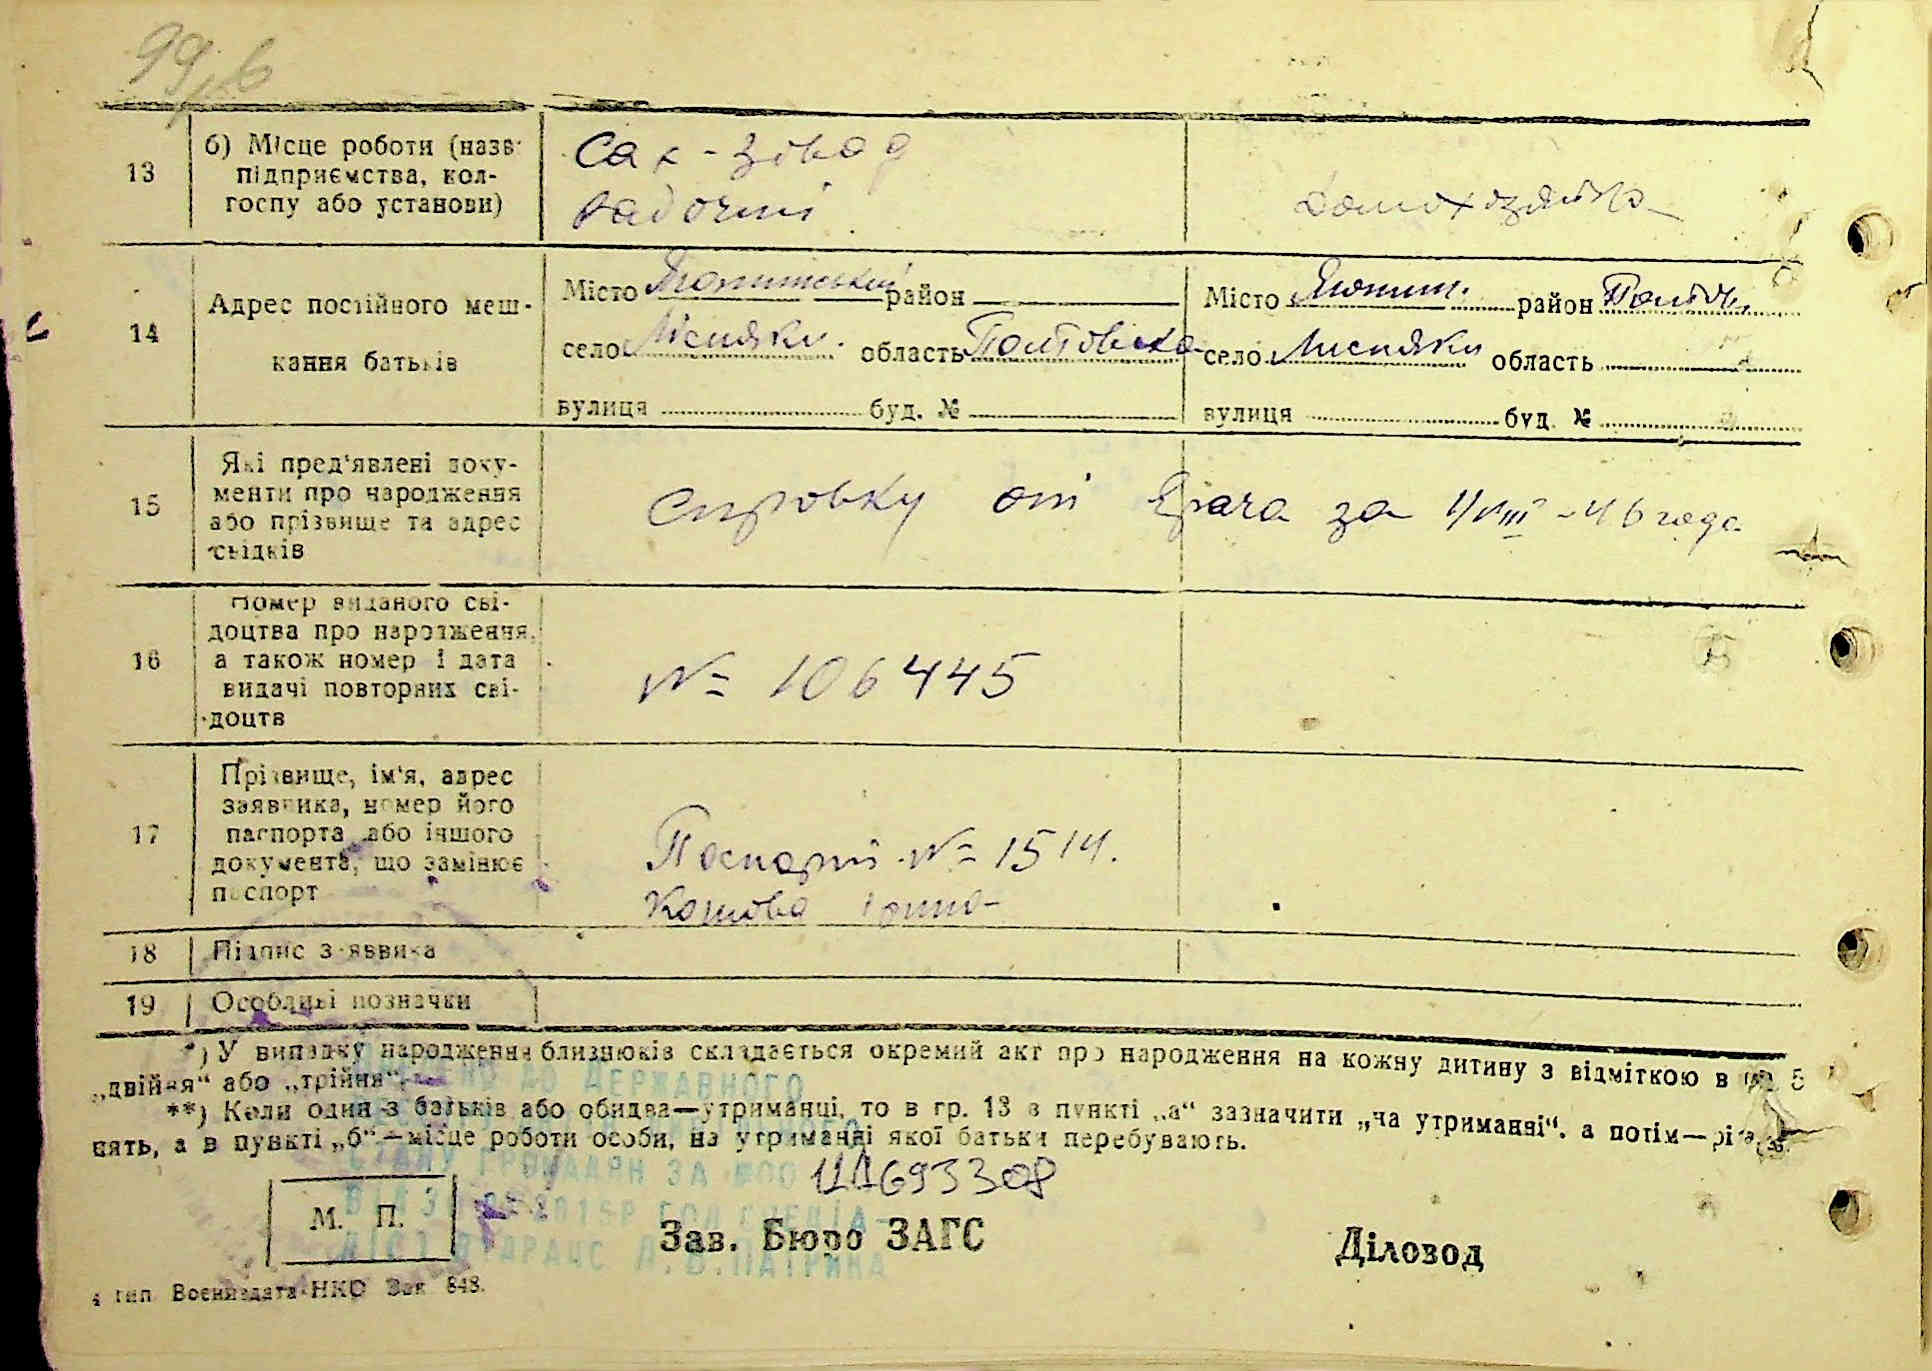 13
б) Місце роботи (назв
підприємства, кол-
госпу або установи)
Сах-завод
рабочий
домохозяйка
14
Адрес постійного меш-
кання батьків
Місто район
село Лисняки. область Полтовска
вулиця буд. №
Місто район Полтов.
село Лисняки область
вулиця буд. №
15
Які пред'явлені доку-
менти про народження
або прізвище та адрес
свідків
справку от врача за 1/VIII-46 года
16
Номер виданого сві-
доцтва про народження,
а також номер і дата
видачі повторних сві-
доцтв
№ 106445
17
Прізвище, ім'я, адрес
заявника, номер його
паспорта або іншого
документа, що замінює
паспорт
Паспорт № 1514.
18
Підпис заявника
19
Особливі позначки
*) У випадку народження близнюків складається окремий акт про народження на кожну дитину з відміткою в гр. 5
„двійня“ або „трійня“.
**) Коли один з батьків або обидва—утриманці, то в гр. 13 в пункті „а“ зазначити „на утриманні“, а потім—рід за-
нять, а в пункті „б“—місце роботи особи, на утриманні якої батьки перебувають.
ДО ДЕРЖАВНОГО
СТАНУ ГРОМАДЯН ЗА №00 ЦД693308
М. П.
Зав. Бюро ЗАГС
Діловод
4 тип Воєниздата НКО Зак 848.